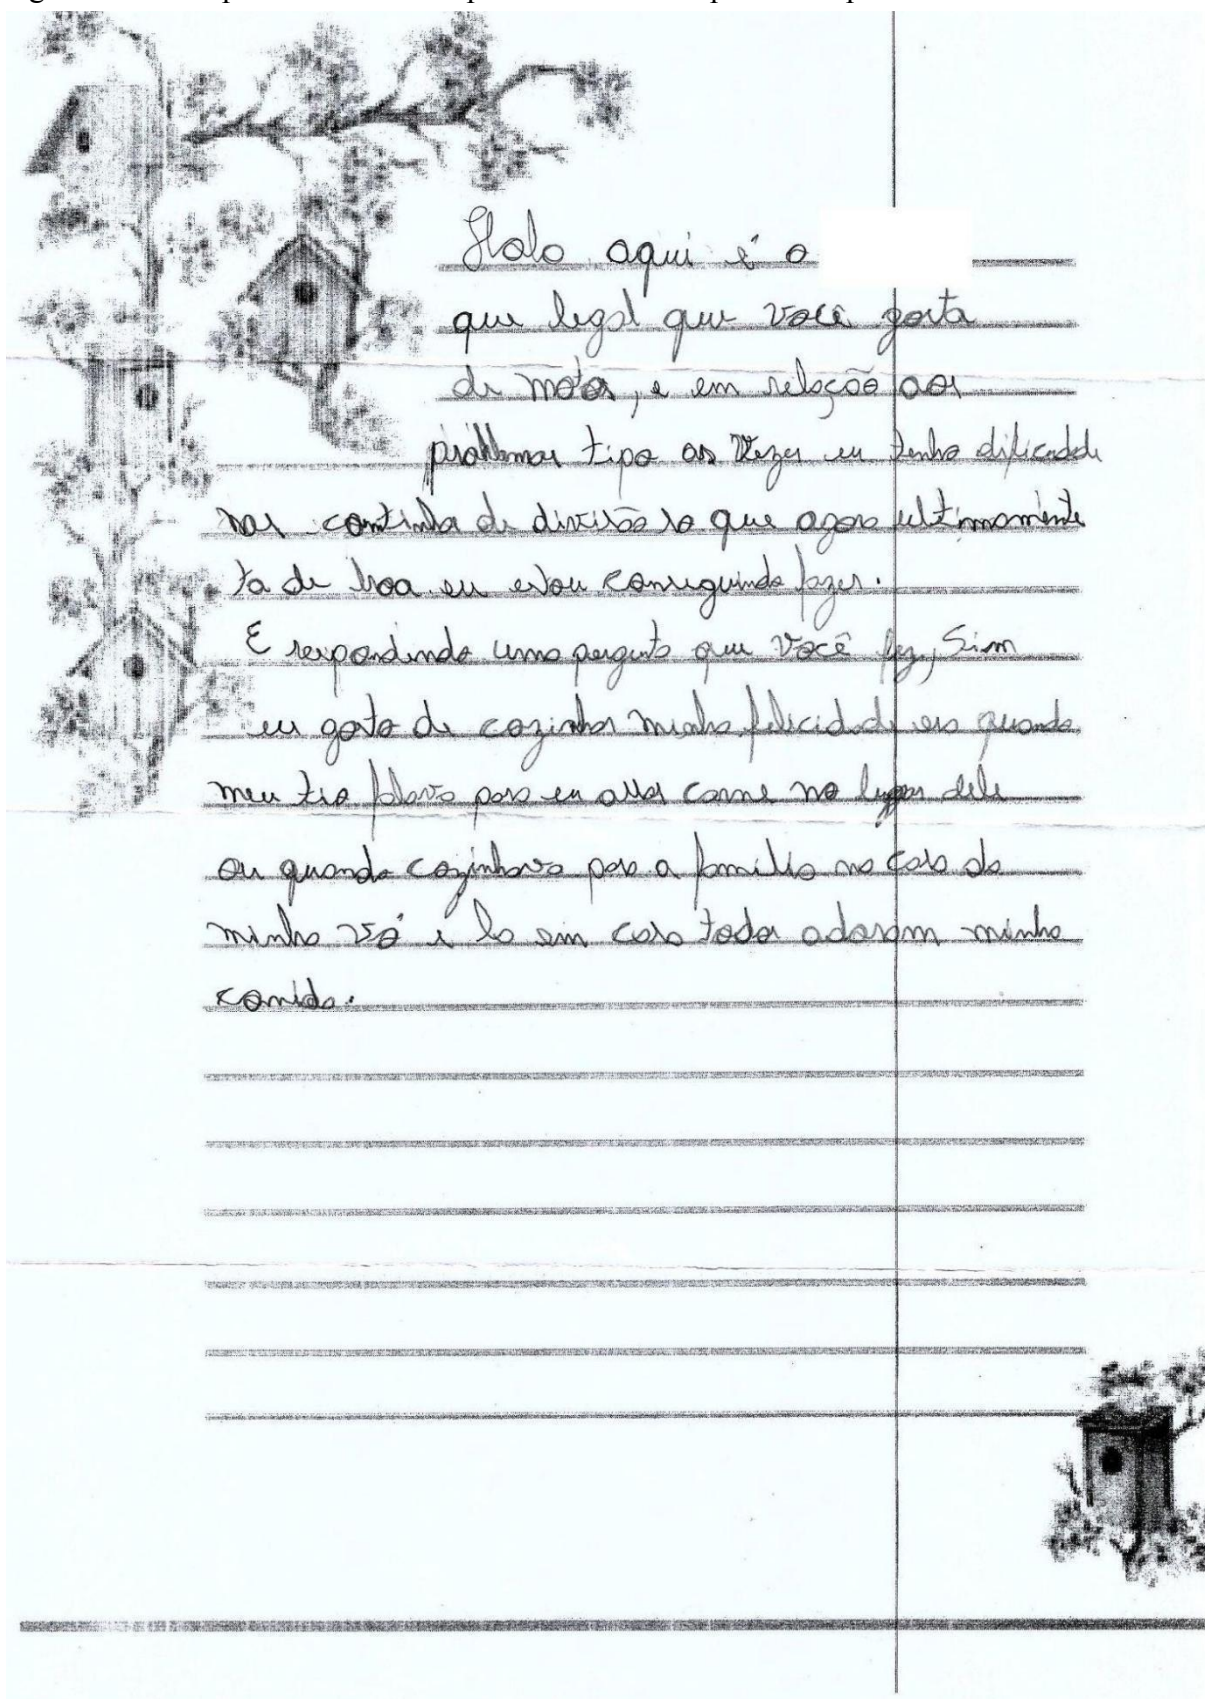 Holo aqui é o
que legal que você gosta
de motos, e em relação aos
problemas tipo as vezes eu tenho dificudade
nas continha de divisão so que agora ultimamente
ta de boa eu estou conseguindo fazer.
E respondendo uma pergunta que você fez, Sim
eu gosto de cozinhar minha felicidade era quando
meu tio falava para eu assar carne no lugar dele
ou quando cozinhava para a familia na casa da
minha vó e la em casa todos adoram minha
comida.